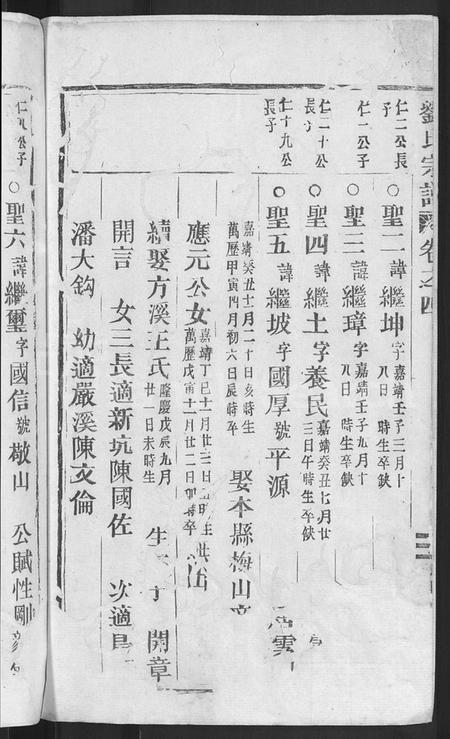 劉氏宗譜 卷之四
仁二公長子
○聖一諱繼坤字
嘉靖壬子三月十
八日 時生卒缺
仁一公子
○聖三諱繼璋字
嘉靖壬子九月十
八日 時生卒缺
仁二十公長子
○聖四諱繼土字養民
嘉靖癸丑七月廿
三日午時生卒缺
仁十九公長子
○聖五諱繼坡字國厚號平源
嘉靖癸丑十月二十日亥時生
萬歷甲寅四月初六日辰時卒
娶本縣梅山
應元公女
嘉靖丁巳十一月廿三日
萬歷戊寅十一月廿二日 時卒
續娶方溪王氏
隆慶戊辰九月
廿一日未時生
生 子 開章
開言 女三長適新坑陳國佐 次適
潘大鈎 幼適嚴溪陳文倫
仁九公子
○聖六諱繼璽字國信號檄山 公賦性剛